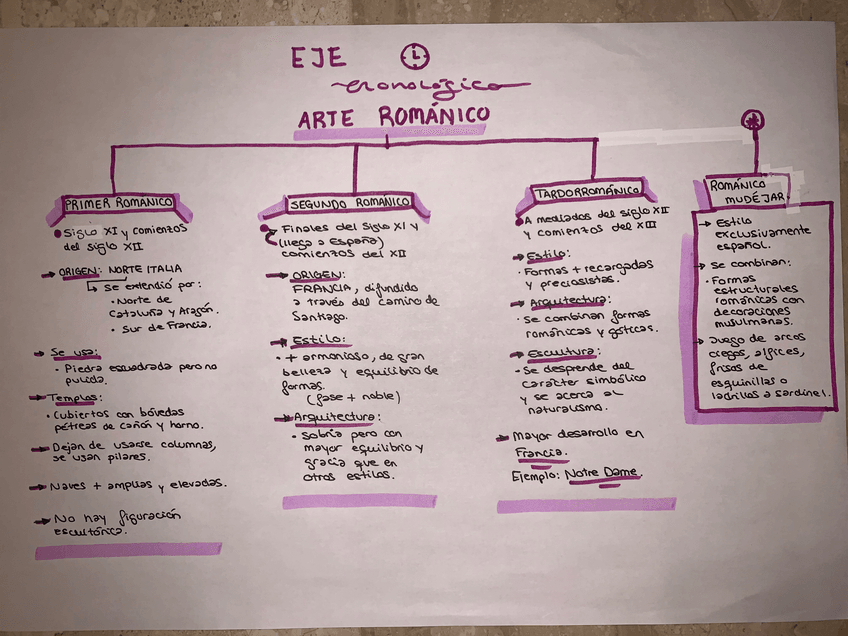 EJE
cronológico
ARTE ROMÁNICO
PRIMER ROMANICO
Siglo XI y comienzos
del siglo XII
ORIGEN: NORTE ITALIA
Se extendió por:
Norte de
Cataluña y Aragón.
Sur de Francia.
Se usa:
Piedra escuadrada pero no
pulida.
Templos:
Cubiertos con bóvedas
pétreas de cañón y horno.
Dejan de usarse columnas,
se usan pilares.
Naves + amplias y elevadas.
No hay figuración
escultórica.
SEGUNDO ROMÁNICO
Finales del siglo XI y
(llega a España)
comienzos del XII
ORIGEN:
FRANCIA, difundido
a través del camino de
Santiago.
Estilo:
+ armonioso, de gran
belleza y equilibrio de
formas.
(fase + noble)
Arquitectura:
Sobria pero con
mayor equilibrio y
gracia que en
otros estilos.
TARDORROMÁNICO
A mediados del siglo XII
y comienzos del XIII
Estilo:
Formas + recargadas
y preciosistas.
Arquitectura:
Se combinan formas
románicas y góticas.
Escultura:
Se desprende del
carácter simbólico
y se acerca al
naturalismo.
Mayor desarrollo en
Francia.
Ejemplo: Notre Dame.
ROMÁNICO
MUDÉJAR
Estilo
exclusivamente
español.
Se combinan:
Formas
estructurales
románicas con
decoraciones
musulmanas.
Juego de arcos
ciegos, alfices,
frisos de
esquinillas o
ladrillos a sardinel.